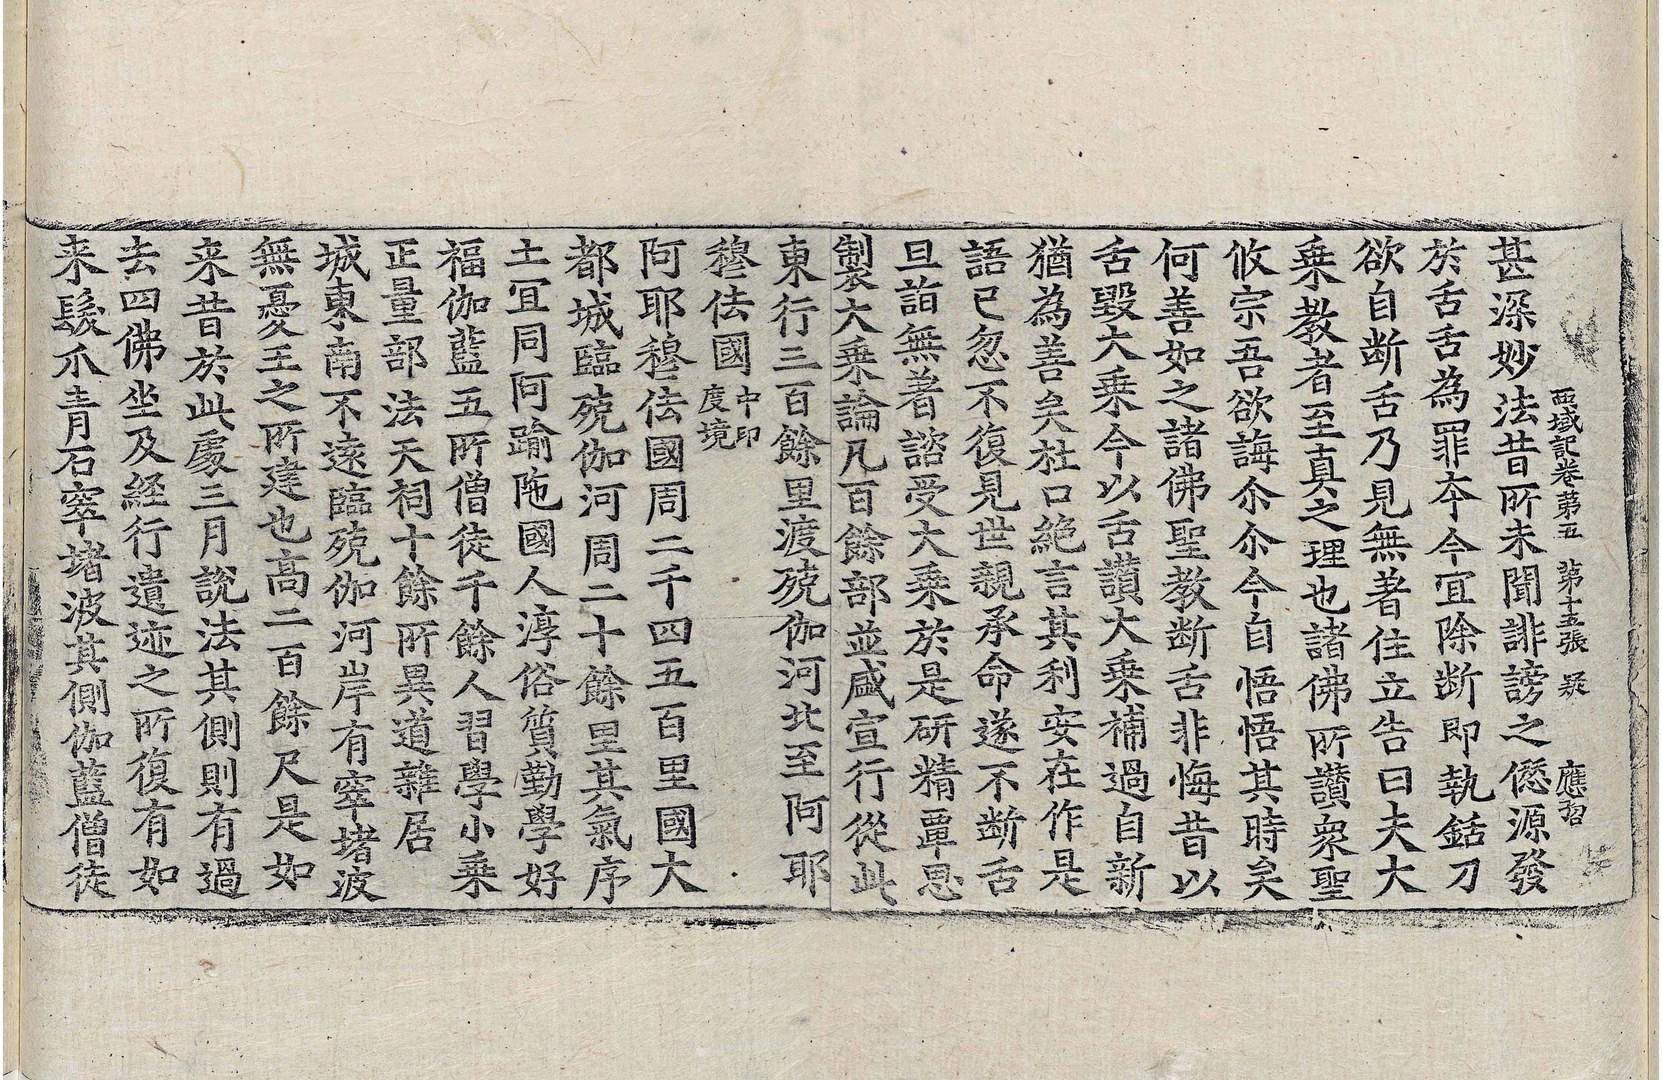 西域記卷苐五 苐十五張 㲋 應習
甚深妙法昔所未聞誹謗之𠎝源發
於舌舌為罪夲今宜除断即執銛刀
欲自断舌乃見無著住立告曰夫大
乗教者至真之理也諸佛所讃衆聖
攸宗吾欲誨尒尒今自悟悟其時矣
何善如之諸佛聖教断舌非悔昔以
舌毀大乗今以舌讃大乗補過自新
猶為善矣杜口絶言其利安在作是
語已忽不復見世親承命遂不断舌
旦詣無著諮受大乗於是研精覃思
製大乗論凡百餘部並盛宣行從此
東行三百餘里渡殑伽河北至阿耶
穆佉國中印度境
阿耶穆佉國周二千四五百里國大
都城臨殑伽河周二十餘里其氣序
土冝同阿踰陁國人淳俗質勤學好
福伽藍五所僧徒千餘人習學小乗
正量部法天祠十餘所異道雜居
城東南不遠臨殑伽河岸有窣堵波
無憂王之所建也高二百餘尺是如
来昔於此處三月說法其側則有過
去四佛坐及経行遺迹之所復有如
来髮爪青石窣堵波其側伽藍僧徒